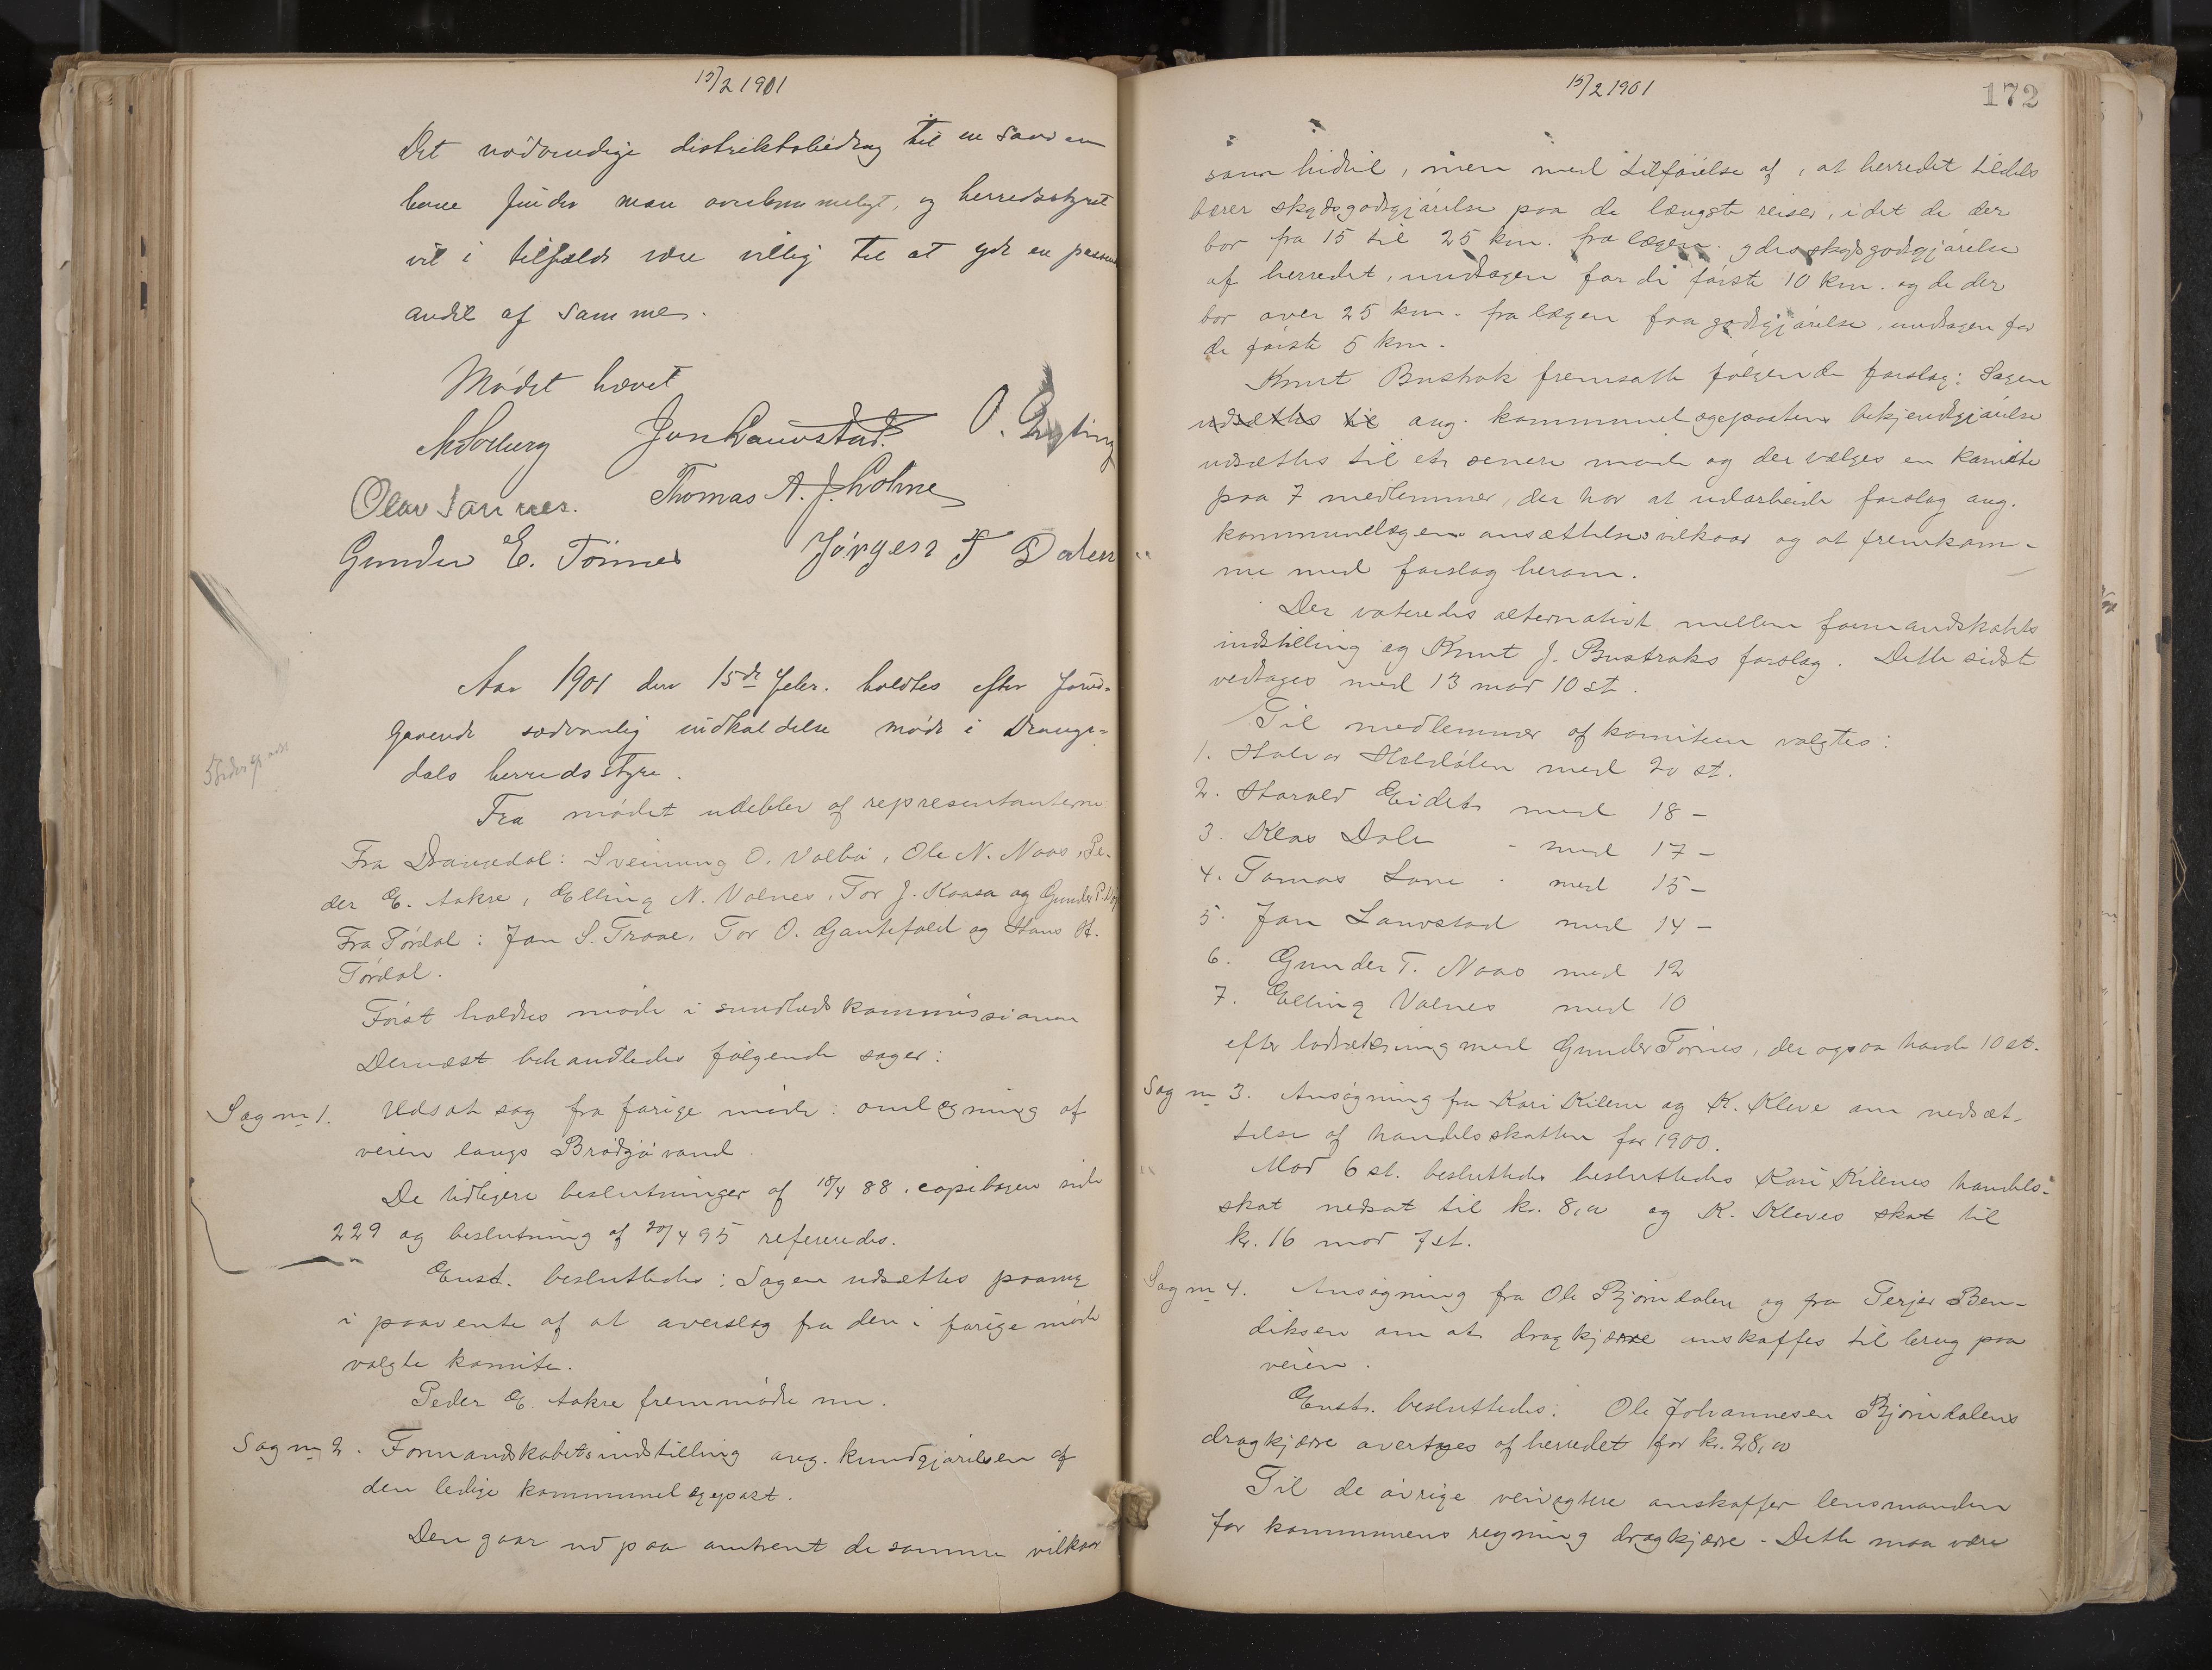 15/2 1901
Det nødvendige distriktsbidrag til en saadan
bane finder man overkommeligt, og herredsstyret
vil i tilfælde være villig til at yde en passende
andel af samme.
Mødet hævet
Jon Lauvstad. O.
Olav Tørnes. Thomas A. J.
Gunder E. Törnes Jørgen T Dalen
Aar 1901 den 15de Febr. holdtes efter forud-
gaaende sædvanlig indkaldelse møde i Drange-
dals herredsstyre.
Fra mødet udeblev af representanterne
Fra Drangedal: Sveinung O. Valbø, Ole N. Naas, Pe-
der E. Aakre, Elling N. Volnes, Tor J. Kaasa og Gunder T.
Fra Tørdal: Jon S. Traae, Tor O. Gautefald og Hans H.
Tørdal.
Først holdtes møde i sundhedskommissionen
Dernæst behandledes følgende sager:
Sag nr 1. Udsat sag fra forige møde: omlægning af
veien langs Brødsjøvand.
De tidligere beslutninger af 18/4 88, copibogen side
229 og beslutning af 20/4 95 refereredes.
Enst. besluttedes: Sagen udsættes paany
i paavente af at overslag fra den i forige møde
valgte komite.
Peder E. Aakre fremmødte nu.
Sag nr 2. Formandskabets indstilling ang. kundgjørelsen af
den ledige kommunelægepost.
Den gaar ud paa omtrent de samme vilkaar
15/2 1901
172
som hidtil, men med tilføielse af, at herredet tildels
bærer skydsgodtgjørelse paa de længste reiser, idet de der
bor fra 15 til 25 km. fra lægen ydes skydsgodtgjørelse
af herredet, undtagen for de første 10 km. og de der
bor over 25 km. fra lægen faa godtgjørelse, undtagen for
de første 5 km.
Knut Bustrak fremsatte følgende forslag: Sagen
udsættes til ang. kommunelægepostens bekjendtgjørelse
udsættes til et senere møde og der vælges en komite
paa 7 medlemmer, der har at udarbeide forslag ang.
kommunelægens ansættelsesvilkaar og at fremkom-
me med forslag herom.
Der voteredes alternativt mellem formandskabets
indstilling og Knut J. Bustraks forslag. Dette sidst
vedtages med 13 mod 10 st.
Til medlemmer af komiteen valgtes:
1. Halvor Holdølen med 20 st.
2. Harald Eidet med 18 -
3. Klas Dale - med 17 -
4. Tomas Lone - med 15 -
5. Jon Lauvstad med 14 -
6. Gunder T. Naas med 12
7. Elling Volnes med 10
efter lodtrækning med Gunder Tørnes, der ogsaa havde 10 st.
Sag nr 3. Ansøgning fra Kari Kilene og K. Kleve om nedsæt-
telse af handelsskatten for 1900.
Mod 6 st. besluttedes besluttedes Kari Kilenes handels-
skat nedsat til kr. 8,00 og K. Kleves skat til
kr. 16 mod 7 st.
Sag nr 4. Ansøgning fra Ole Bjørndalen og fra Terjer Ben-
diksen om at dragkjærre anskaffes til brug paa
veien.
Enst. besluttedes: Ole Johannesen Bjørndalens
dragkjærre overtages af herredet for kr. 28,00
Til de øvrige veivogtere anskaffer lensmanden
for kommunens regning dragkjærre. Dette maa være